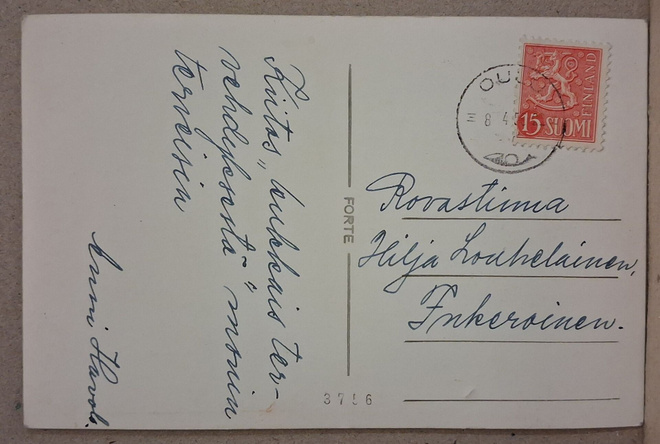 Kiitos „kukkais ter-
vehdyksestä" monin
terveisin
Anni
FORTE
3756
OULU
8 4
15 SUOMI
FINLAND
Rovastinna
Hilja Louhelainen,
Inkeroinen.